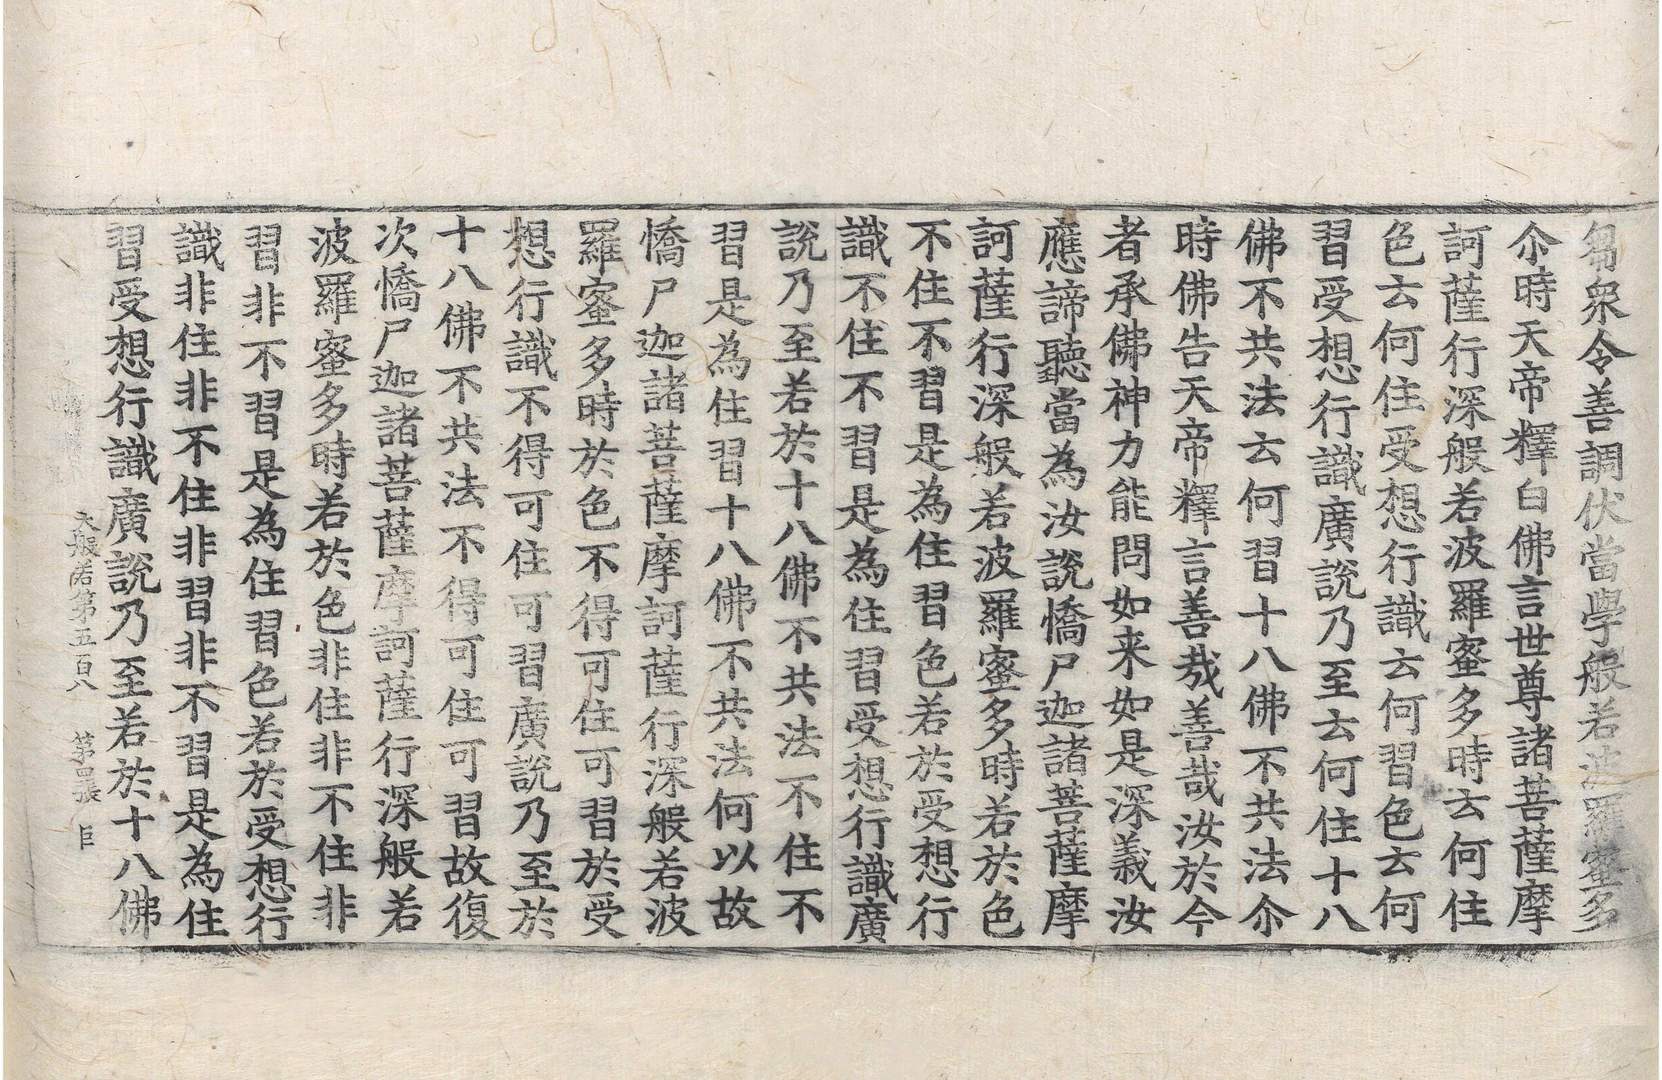 芻衆令善調伏當學般若波羅蜜多
尒時天帝釋白佛言世尊諸菩薩摩
訶薩行深般若波羅蜜多時云何住
色云何住受想行識云何習色云何
習受想行識廣說乃至云何住十八
佛不共法云何習十八佛不共法尒
時佛告天帝釋言善哉善哉汝於今
者承佛神力能問如来如是深義汝
應諦聽當為汝說憍尸迦諸菩薩摩
訶薩行深般若波羅蜜多時若於色
不住不習是為住習色若於受想行
識不住不習是為住習受想行識廣
說乃至若於十八佛不共法不住不
習是為住習十八佛不共法何以故
憍尸迦諸菩薩摩訶薩行深般若波
羅蜜多時於色不得可住可習於受
想行識不得可住可習廣說乃至於
十八佛不共法不得可住可習故復
次憍尸迦諸菩薩摩訶薩行深般若
波羅蜜多時若於色非住非不住非
習非不習是為住習色若於受想行
識非住非不住非習非不習是為住
習受想行識廣說乃至若於十八佛
大般若第五百八 第四張